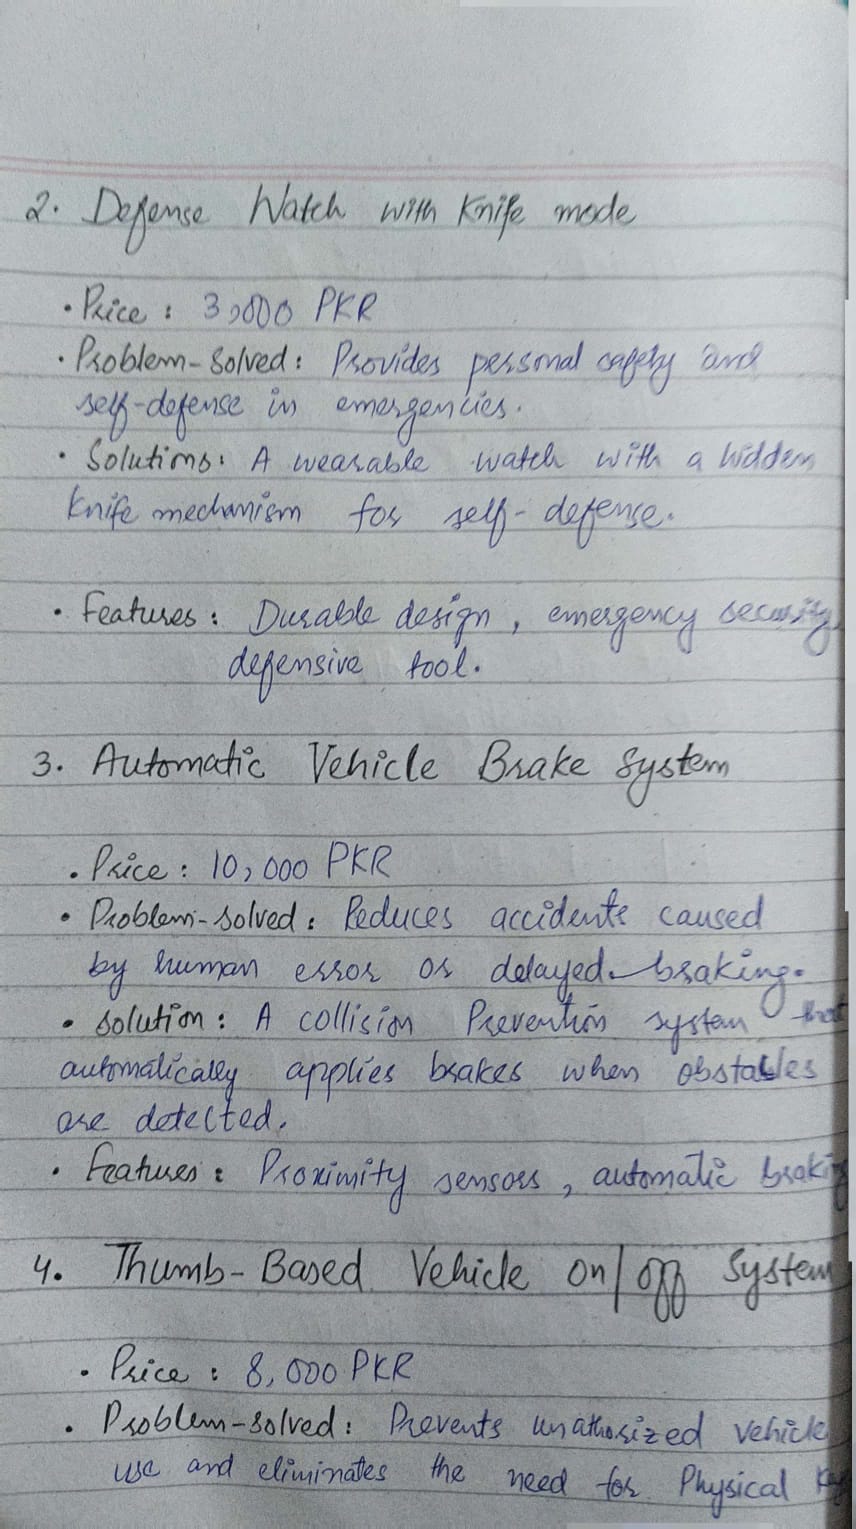 2. Defense Watch with Knife mode
• Price : 3,000 PKR
• Problem-Solved : Provides personal safety and
self-defense in emergencies.
• Solutions: A wearable watch with a hidden
knife mechanism for self-defense.
• Features : Durable design, emergency security,
defensive tool.
3. Automatic Vehicle Brake System
• Price : 10,000 PKR
• Problem-solved : Reduces accidents caused
by human error or delayed braking.
• Solution : A collision Prevention system that
automatically applies brakes when obstacles
are detected.
• Features : Proximity sensors, automatic braking
4. Thumb-Based Vehicle on/off System
• Price : 8,000 PKR
• Problem-solved : Prevents unathorized vehicle
use and eliminates the need for Physical